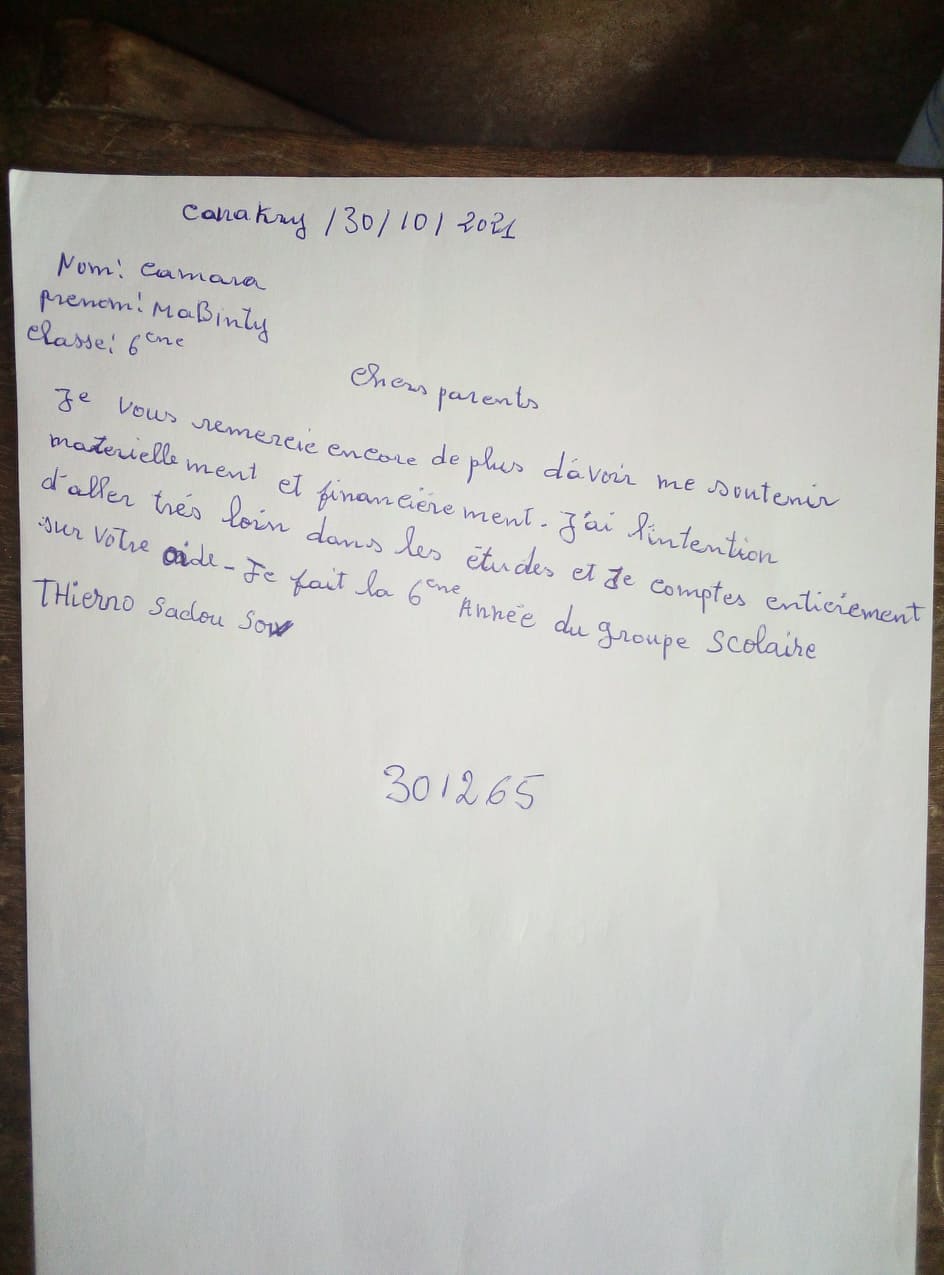 Conakry /30/10/2021
Nom: Camara
prenom: MaBinty
classe: 6ene
chers parents
Je vous remercie encore de plus d'avoir me soutenir
materiellement et financiérement. J'ai l'intention
d'aller trés loin dans les études et Je comptes entiérement
sur votre aide - Je fait la 6ene Année du groupe scolaire
THierno Sadou Sow
301265